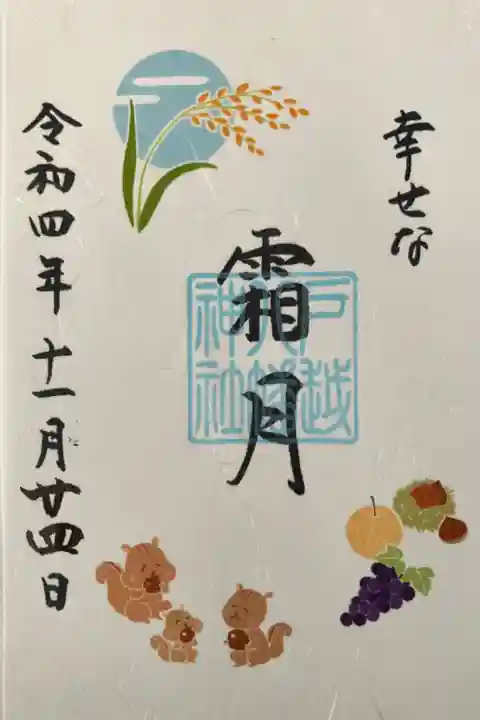 幸せな
霜月
戸越
八幡
神社
令和四年十一月廿四日